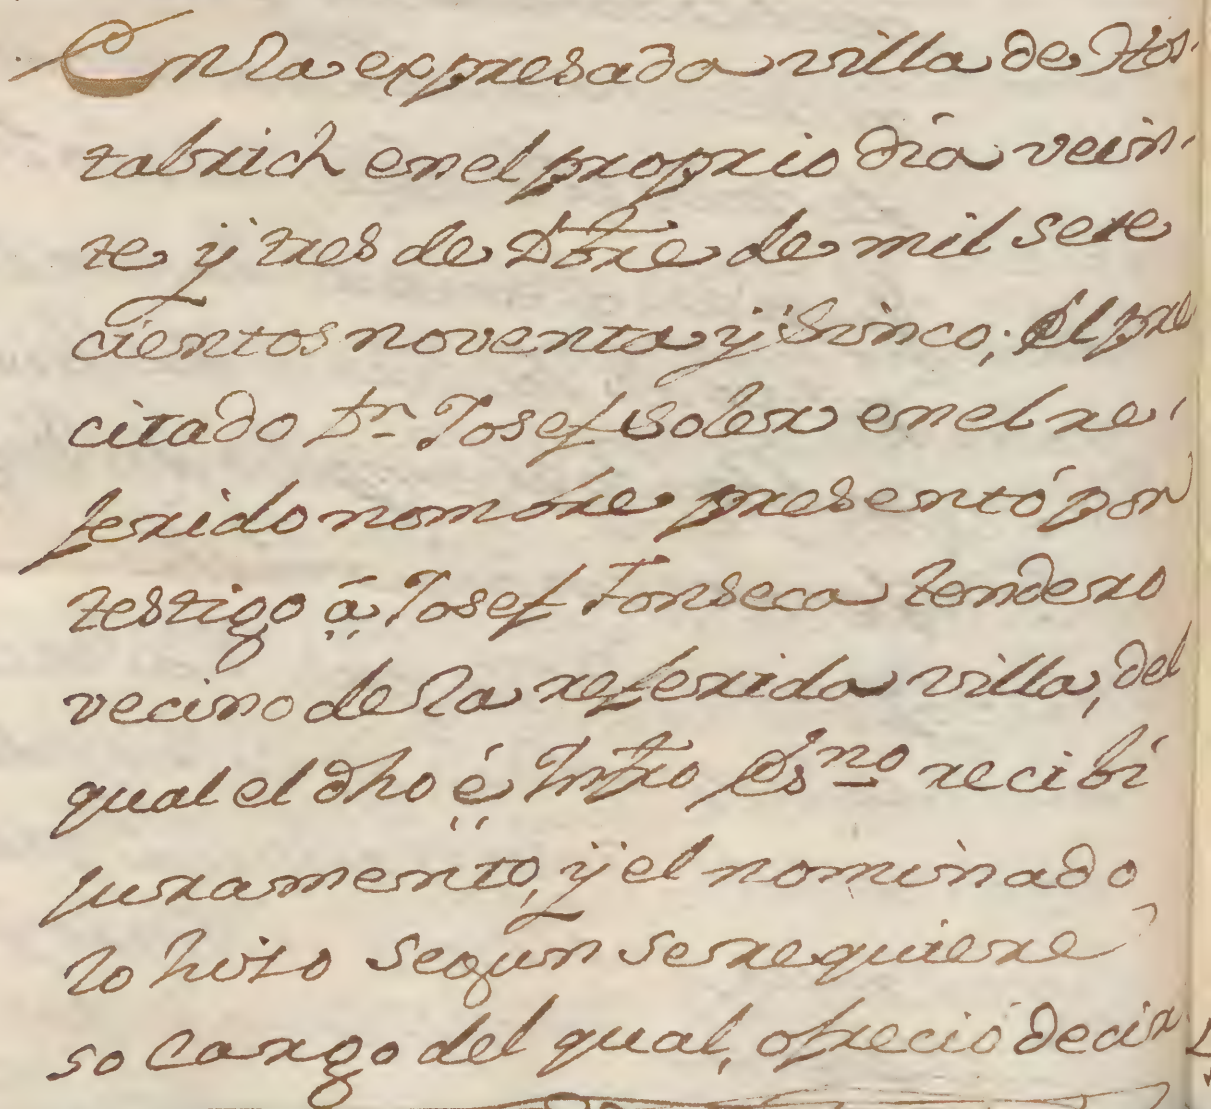 En la expresada villa de Hos-
talrich en el proprio dia vein-
te y tres de Dbre de mil sete
cientos noventa y sinco; el pre
citado Dn. Josef Soler en el re-
ferido nombre presentó por
testigo á Josef Fonseca tendero
vecino de la referida villa, del
qual el dho é Infro Esno recibí
juramento, y el nominado
lo hizo segun se requiere
so cargo del qual, ofreció decir